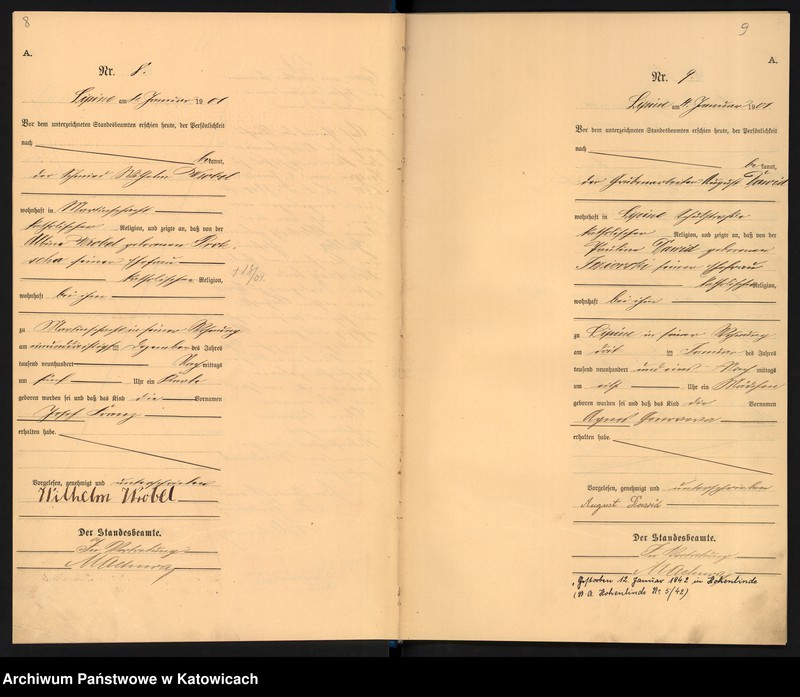 8
A.
Nr. 8.
Lipine am 4. Januar 1901
Vor dem unterzeichneten Standesbeamten erschien heute, der Persönlichkeit
nach
bekannt,
der Schmied Wilhelm Wrobel
wohnhaft in Martinschacht
katholischer Religion, und zeigte an, daß von der
Albine Wrobel geborenen
seiner Ehefrau
katholischer Religion,
† 18/01
wohnhaft bei ihm
zu Martinschacht in seiner Wohnung
am einunddreißigsten Dezember des Jahres
tausend neunhundert Nachmittags
um fünf Uhr ein Knabe
geboren worden sei und daß das Kind die Vornamen
Josef Franz
erhalten habe.
Vorgelesen, genehmigt und unterschrieben
Wilhelm Wrobel
Der Standesbeamte.
In Vertretung
9
A.
Nr. 9.
Lipine am 4. Januar 1901
Vor dem unterzeichneten Standesbeamten erschien heute, der Persönlichkeit
nach
bekannt,
der Grubenarbeiter August Dawid
wohnhaft in Lipine Schulstraße
katholischer Religion, und zeigte an, daß von der
Pauline Dawid geborenen
seiner Ehefrau
katholischer Religion,
wohnhaft bei ihm
zu Lipine in seiner Wohnung
am Januar des Jahres
tausend neunhundert und eins Nachmittags
um Uhr ein Mädchen
geboren worden sei und daß das Kind die Vornamen
Agnes Genoveva
erhalten habe.
Vorgelesen, genehmigt und unterschrieben
August Dawid
Der Standesbeamte.
In Vertretung
Gestorben 12. Januar 1942 in Hohenlinde
(St. A. Hohenlinde Nr. 5/42)
Archiwum Państwowe w Katowicach